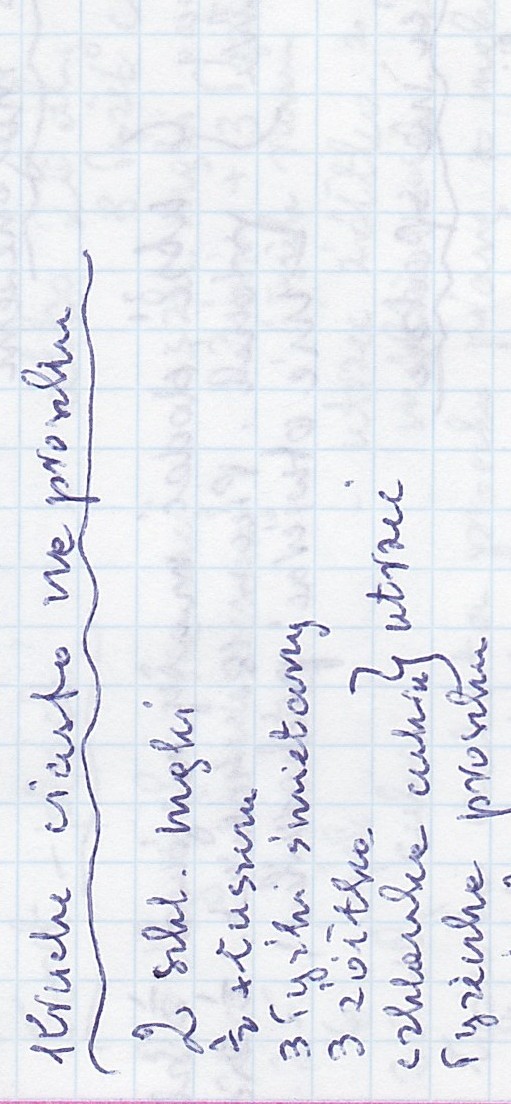 Kruche ciasto na proszku
2 szkl. mąki
½ tłuszczu
3 łyżki śmietany
3 żółtka
szklanka cukru } utrzeć
łyżeczka proszku